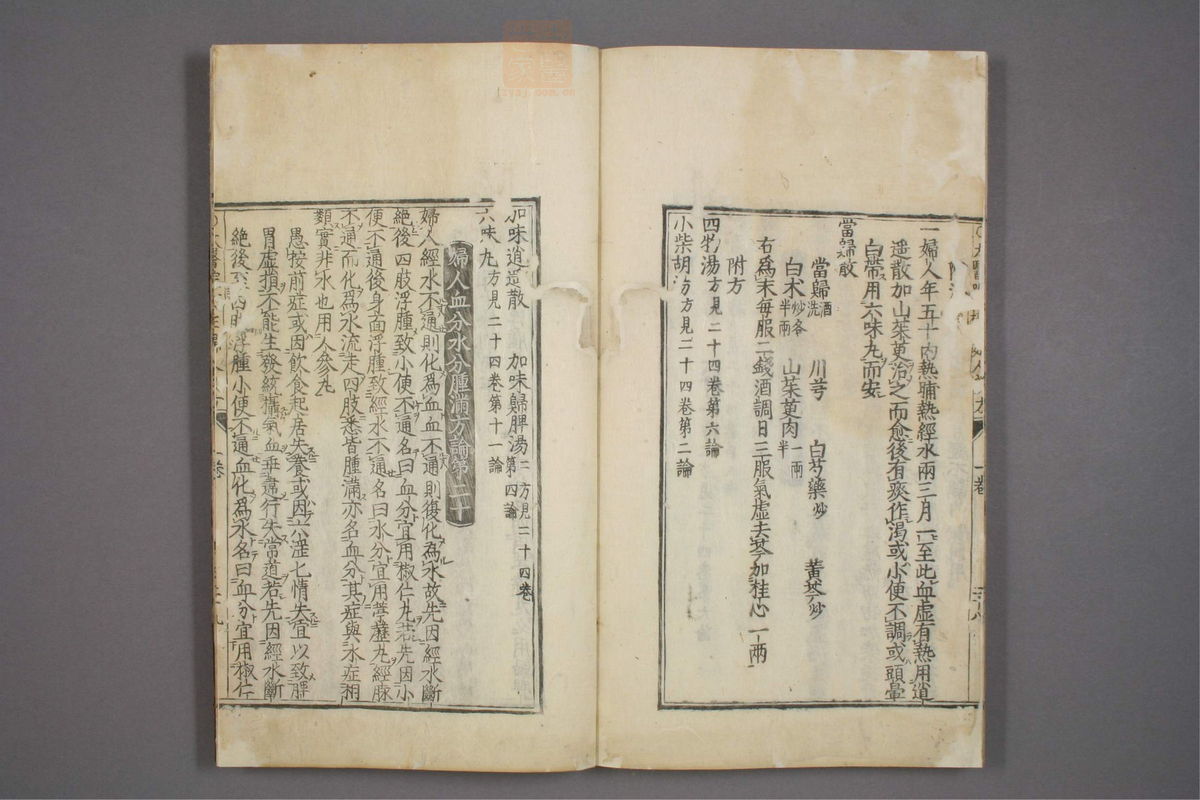 一婦人年五十內熱晡熱經水兩三月一至此血虛有熱用逍
遥散加山茱萸治之而愈後有痰作渴或小便不調或頭暈
白帶用六味丸而安
當歸散
當歸酒洗 川芎 白芍藥炒 黃芩炒
白术炒各半兩 山茱萸肉一兩半
右爲末每服二錢酒調日三服氣虛去芩加桂心一兩
附方
四物湯方見二十四卷第六論
小柴胡湯方見二十四卷第二論
加味逍遥散 加味歸脾湯二方見二十四卷第四論
六味丸方見二十四卷第十一論
婦人血分水分腫滿方論第二十
婦人經水不通則化爲血血不通則復化爲水故先因經水斷
絶後四肢浮腫致小便不通名曰血分宜用椒仁丸若先因小
便不通後身面浮腫致經水不通名曰水分宜用葶藶丸經脉
不通而化爲水流走四肢悉皆腫滿亦名血分其症與水症相
類實非水也用人參丸
愚按前症或因飲食起居失養或因六淫七情失宜以致脾
胃虛損不能生發統攝氣血乖違行失常道若先因經水斷
絶後至四肢浮腫小便不通血化爲水名曰血分宜用椒仁